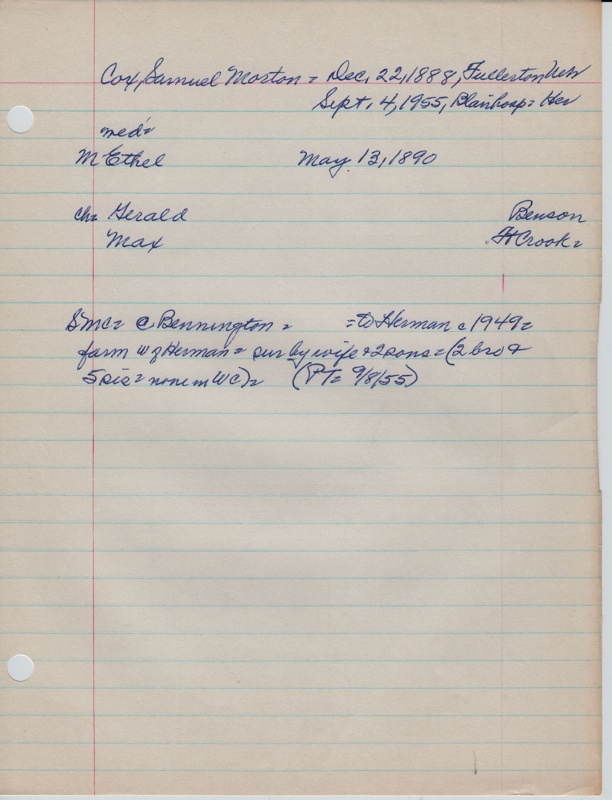 Cox, Samuel Morton = Dec, 22, 1888, Fullerton Neb
Sept, 4, 1955, Blair hosp = Her
med =
M Ethel May 13, 1890
ch = Gerald Benson
Max Ft Crook =
SMC = c Bennington = = to Herman c 1949 =
farm w of Herman = sur by wife + 2 sons = (2 bro &
5 sis = none in WC) = (PT = 9/8/55)